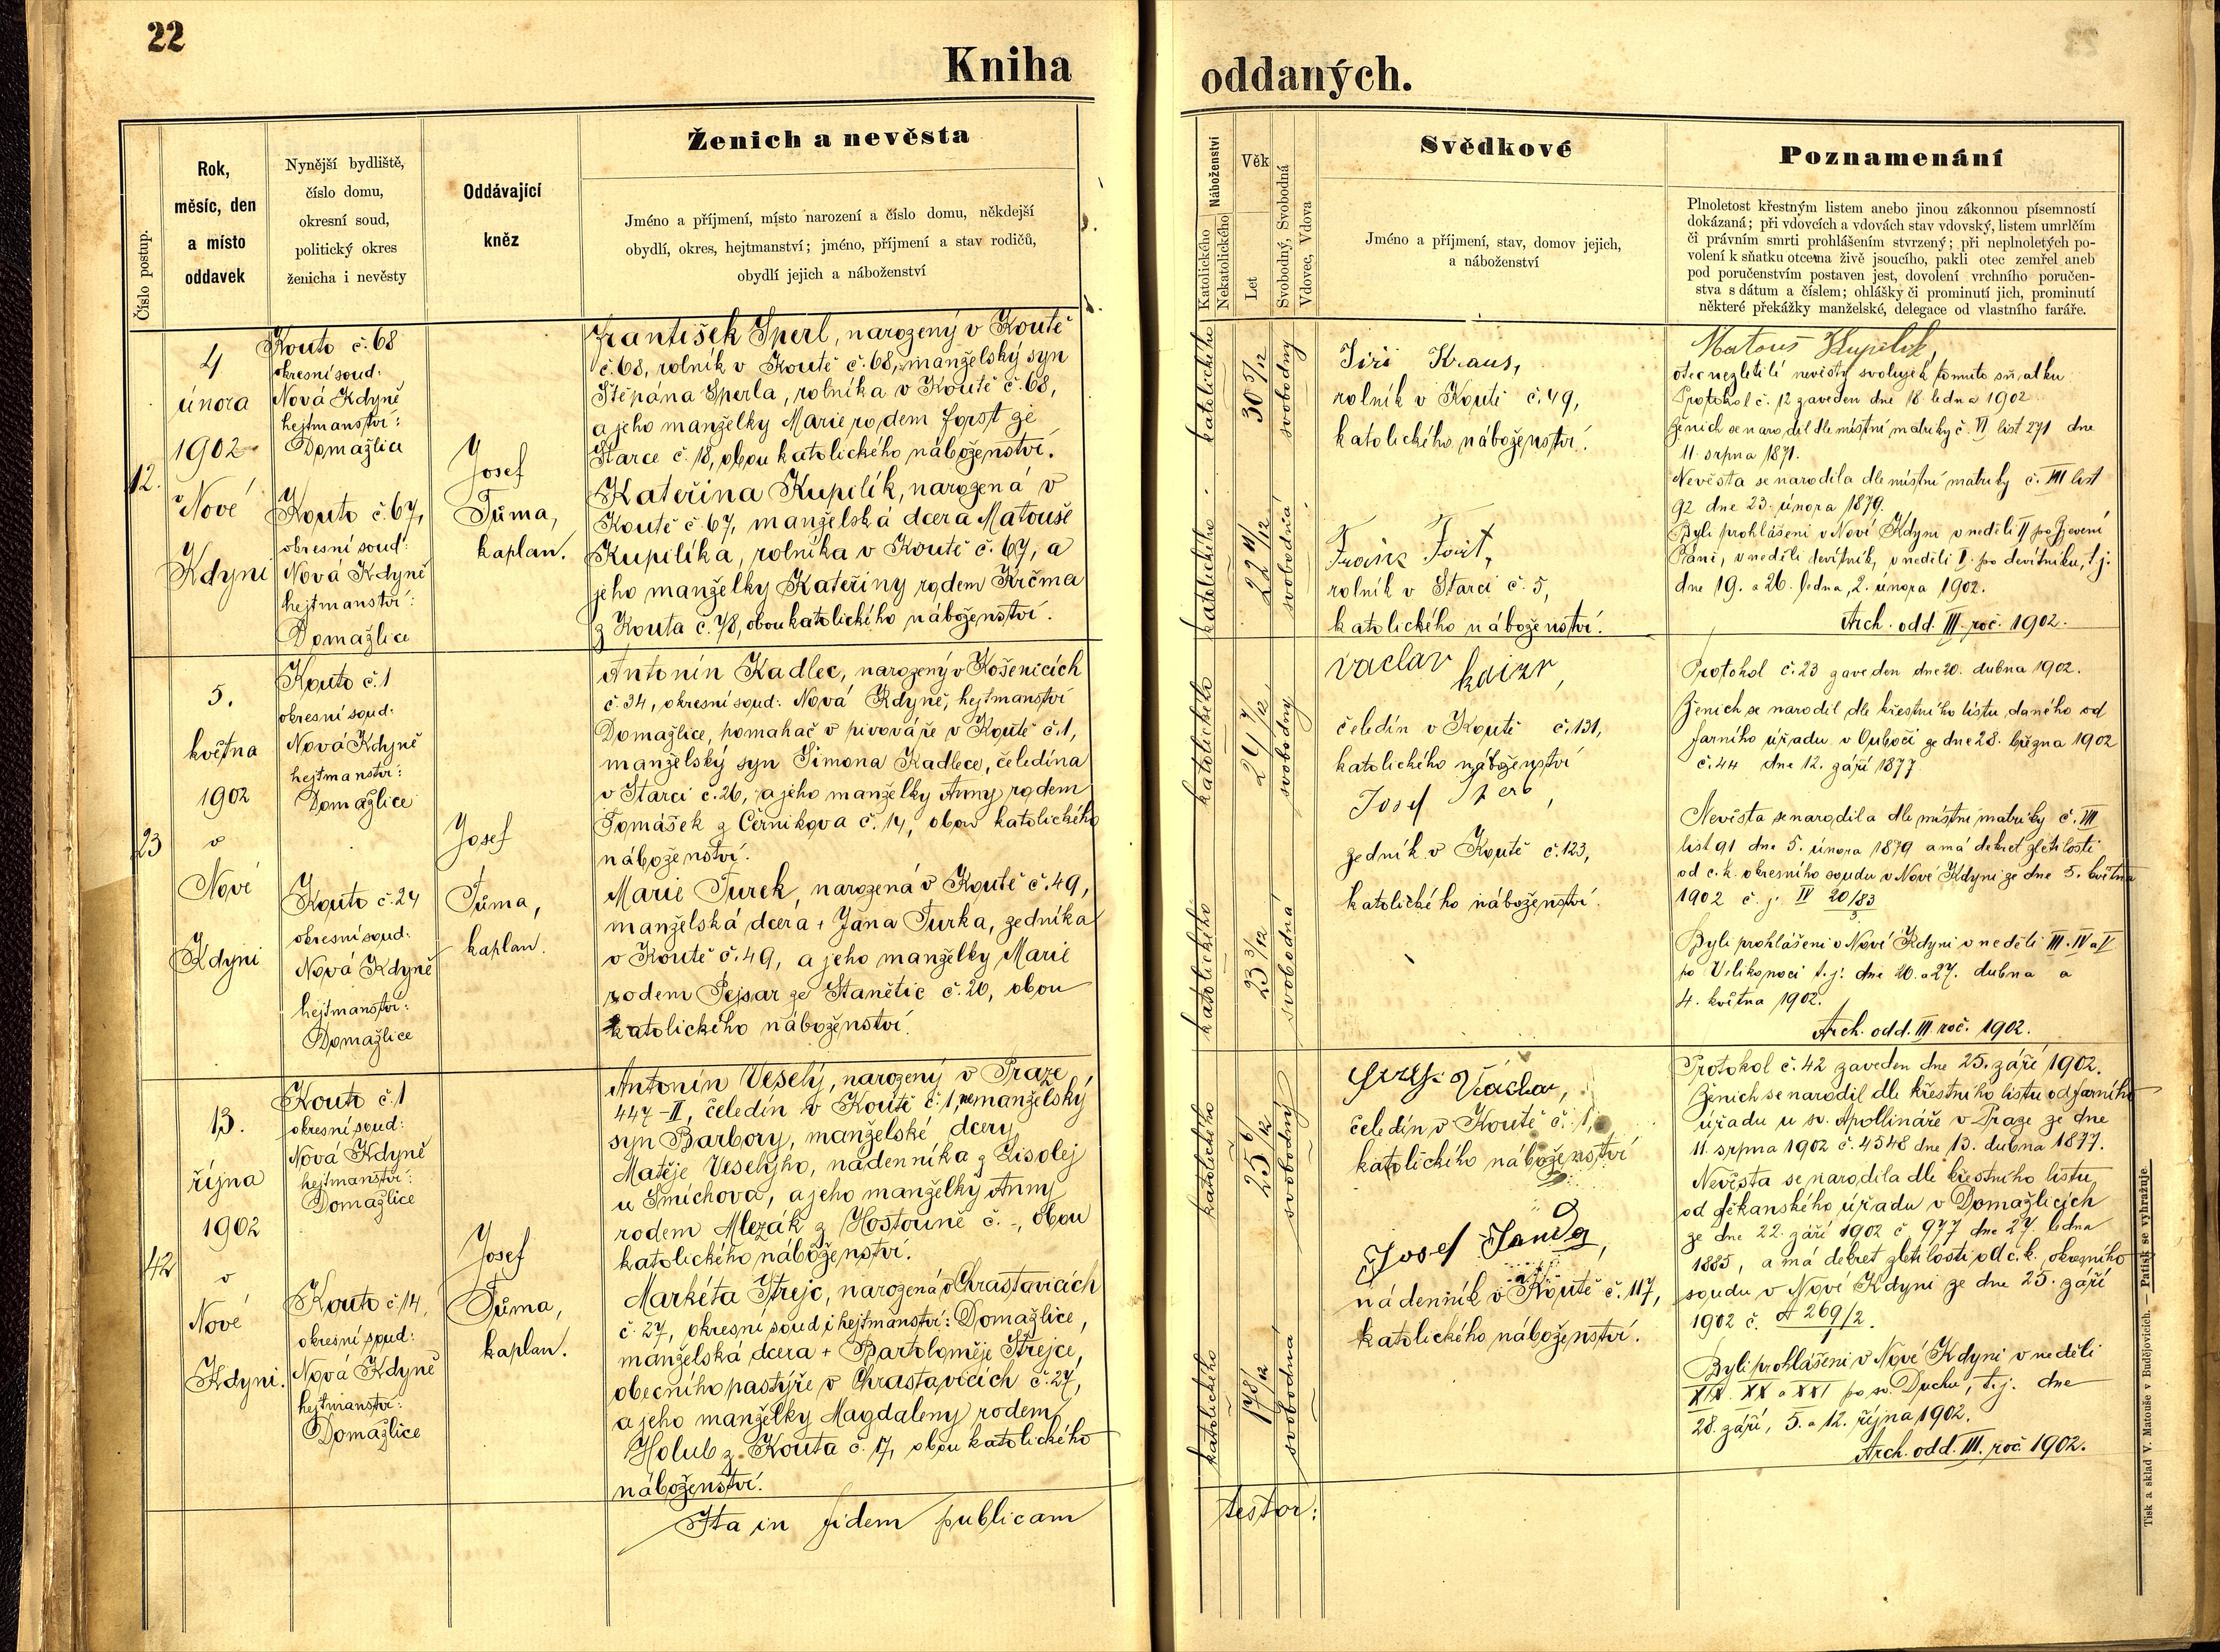 22
Kniha
oddaných.
Číslo postup.
Rok,
měsíc, den
a místo
oddavek
Nynější bydliště,
číslo domu,
okresní soud,
politický okres
ženicha i nevěsty
Oddávající
kněz
Ženich a nevěsta
Jméno a příjmení, místo narození a číslo domu, někdejší
obydlí, okres, hejtmanství; jméno, příjmení a stav rodičů,
obydlí jejich a náboženství
Náboženství
Katolického
Nekatolického
Věk
Let
Svobodný, Svobodná
Vdovec, Vdova
Svědkové
Jméno a příjmení, stav, domov jejich,
a náboženství
Poznamenání
Plnoletost křestným listem anebo jinou zákonnou písemností
dokázaná; při vdovcích a vdovách stav vdovský, listem umrlčím
či právním smrti prohlášením stvrzený; při neplnoletých po-
volení k sňatku otcema živě jsoucího, pakli otec zemřel aneb
pod poručenstvím postaven jest, dovolení vrchního poručen-
stva s dátum a číslem; ohlášky či prominutí jich, prominutí
některé překážky manželské, delegace od vlastního faráře.
12.
4
února
1902
v
Nové
Kdyni
Kouto č. 68
okresní soud:
Nová Kdyně
hejtmanství:
Domažlice
Kouto č. 67,
okresní soud:
Nová Kdyně
hejtmanství:
Domažlice
Josef
Tůma,
kaplan.
František Sperl, narozený v Koutě
č. 68, rolník v Koutě č. 68, manželský syn
Štěpána Sperla, rolníka v Koutě č. 68,
a jeho manželky Marie rodem Forst ze
Starce č. 18, obou katolického náboženství.
Kateřina Kupilík, narozená v
Koutě č. 67, manželská dcera Matouše
Kupilíka, rolníka v Koutě č. 67, a
jeho manželky Kateřiny rodem Krčma
z Kouta č. 78, obou katolického náboženství.
katolického
30 5/12
svobodný
katolického
22 11/12
svobodná
Jiří Kraus,
rolník v Koutě č. 49,
katolického náboženství.
rolník v Starci č. 5,
katolického náboženství.
Matouš Kupilík,
otec nezletilé nevěsty svoluje k tomuto sňatku
Protokol č. 12 zaveden dne 18 ledna 1902.
Ženich se narodil dle místní matriky č. VI list 271 dne
11. srpna 1871.
Nevěsta se narodila dle místní matriky č. VIII list
92 dne 23. února 1879.
Byli prohlášeni v Nové Kdyni v neděli II po Zjevení
Páně, v neděli devítník, v neděli I. po devítníku, t. j.
dne 19. a 26. ledna, 2. února 1902.
Arch. odd. III. roč. 1902.
23
5.
května
1902
v
Nové
Kdyni
Kouto č. 1
okresní soud:
Nová Kdyně
hejtmanství:
Domažlice
Kouto č. 24
okresní soud:
Nová Kdyně
hejtmanství:
Domažlice
Josef
Tůma,
kaplan.
Antonín Kadlec, narozený v Košenicích
č. 34, okresní soud: Nová Kdyně, hejtmanství
Domažlice, pomahač v pivováře v Koutě č. 1,
manželský syn Šimona Kadlece, čeledína
v Starci č. 26, a jeho manželky Anny rodem
Tomášek z Černikova č. 14, obou katolického
náboženství.
Marie Turek, narozená v Koutě č. 49,
manželská dcera + Jana Turka, zedníka
v Koutě č. 49, a jeho manželky Marie
rodem Pejsar ze Stanětic č. 20, obou
katolického náboženství.
katolického
24 7/12
svobodný
katolického
23 3/12
svobodná
vaclav kaizr,
čeledín v Koutě č. 131,
katolického náboženství
Josef
zedník v Koutě č. 123,
katolického náboženství.
Protokol č. 23 zaveden dne 20. dubna 1902.
Ženich se narodil dle křestního listu, daného od
farního úřadu v Ouboči ze dne 28. března 1902
č. 44 dne 12. září 1877
Nevěsta se narodila dle místní matriky č. VIII
list 91 dne 5. února 1879 a má dekret zletilosti
od c. k. okresního soudu v Nové Kdyni ze dne 5. května
1902 č. j. IV 20/83
3.
Byli prohlášeni v Nové Kdyni v neděli III. IV a V
po Velikonoci t. j. dne 20. a 27. dubna a
4. května 1902.
Arch. odd. III roč. 1902.
42
13.
října
1902
v
Nové
Kdyni.
Kouto č. 1
okresní soud:
Nová Kdyně
hejtmanství:
Domažlice
Kouto č. 14,
okresní soud:
Nová Kdyně
hejtmanství:
Domažlice
Josef
Tůma,
kaplan.
Antonín Veselý, narozený v Praze
447-II, čeledín v Koutě č. 1, nemanželský
syn Barbory, manželské dcery
Matěje Veselýho, nádenníka z Lisolej
u Smíchova, a jeho manželky Anny
rodem Mlezák z Hostouně č. -, obou
katolického náboženství.
Markéta Strejc, narozená v Chrastavicích
č. 27, okresní soud i hejtmanství: Domažlice,
manželská dcera + Bartoloměje Strejce,
obecního pastýře v Chrastavicích č. 27,
a jeho manželky Magdaleny rodem
Holub z Kouta č. 17, obou katolického
náboženství.
katolického
25 6/12
svobodný
katolického
17 8/12
svobodná
Václav,
čeledín v Koutě č. 1,
katolického náboženství
Josef Janda,
nádenník v Koutě č. 117,
katolického náboženství.
Protokol č. 42 zaveden dne 25. září 1902.
Ženich se narodil dle křestního listu od farního
úřadu u sv. Apollináře v Praze ze dne
11. srpna 1902 č. 4548 dne 13. dubna 1877.
Nevěsta se narodila dle křestního listu
od děkanského úřadu v Domažlicích
ze dne 22. září 1902 č 977 dne 27. ledna
1885, a má dekret zletilosti od c. k. okresního
soudu v Nové Kdyni ze dne 25. září
1902 č. A 269/2.
1
Byli prohlášeni v Nové Kdyni v neděli
XIX. XX a XXI po sv. Duchu, t. j. dne
28. září, 5. a 12. října 1902.
Arch. odd. III. roč. 1902.
Ita in fidem publicam
testor:
Tisk a sklad V. Matouše v Budějovicích. — Patisk se vyhražuje.